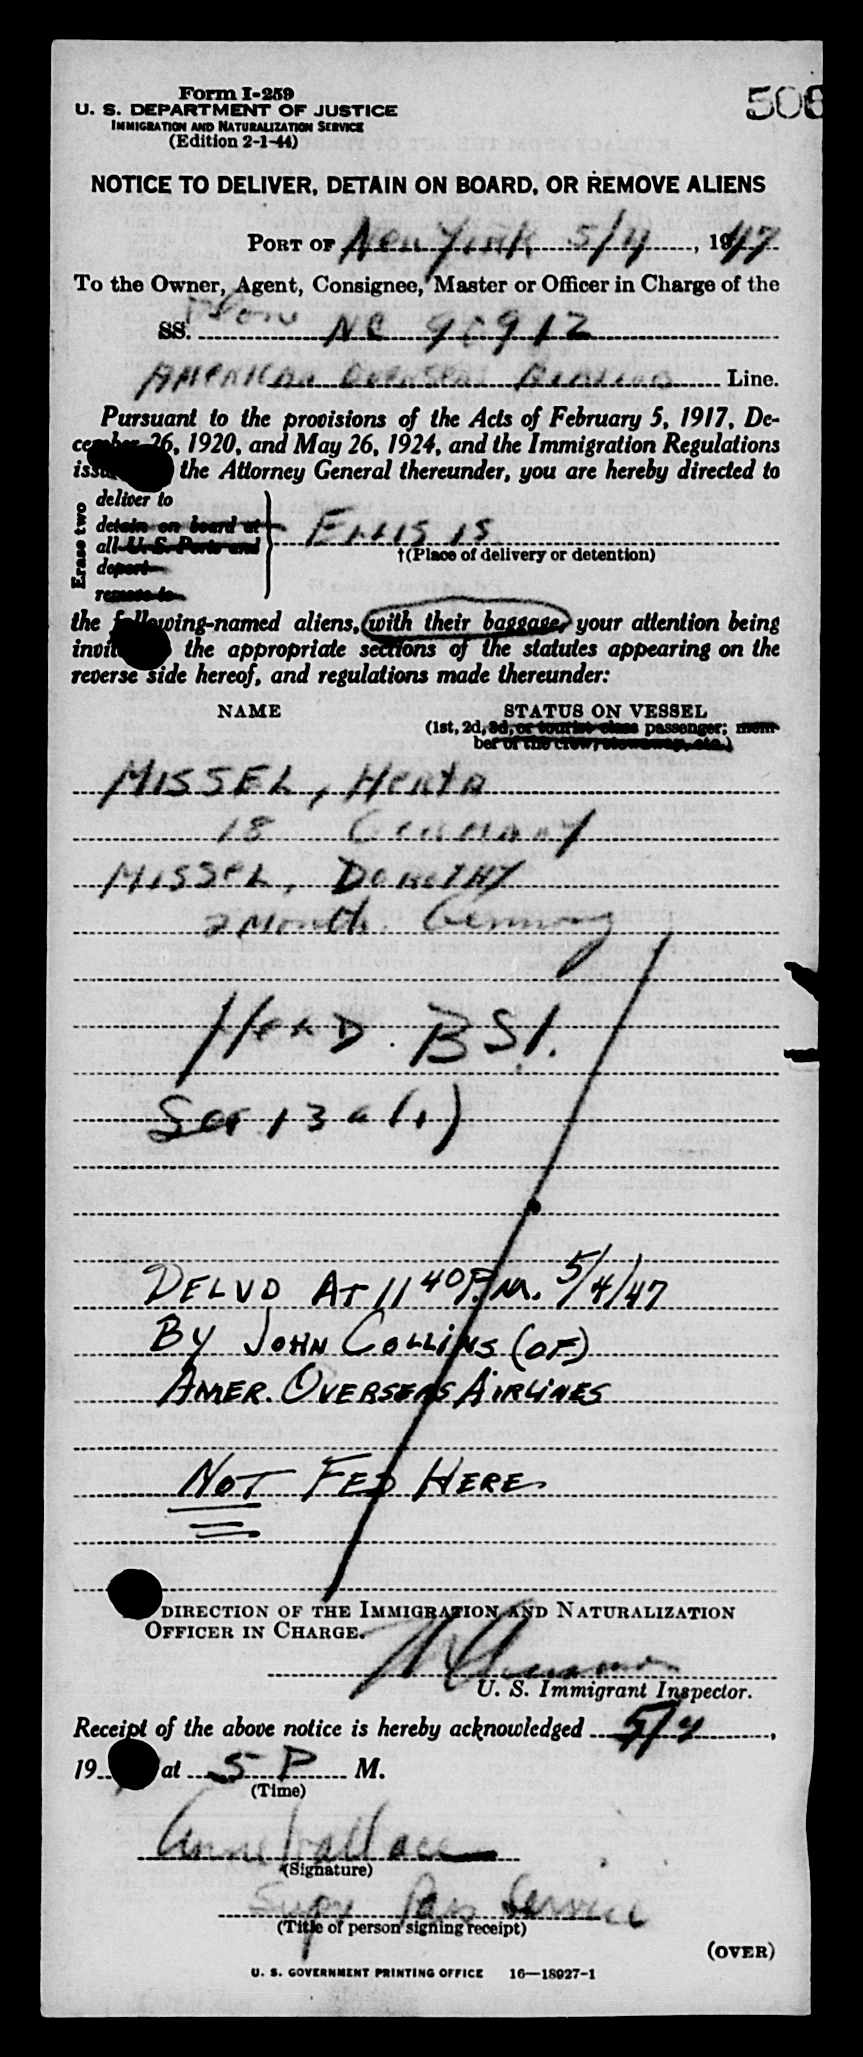 Form I-259
U. S. DEPARTMENT OF JUSTICE
IMMIGRATION AND NATURALIZATION SERVICE
(Edition 2-1-44)
506
NOTICE TO DELIVER, DETAIN ON BOARD, OR REMOVE ALIENS
PORT OF New York 5/4, 1947
To the Owner, Agent, Consignee, Master or Officer in Charge of the
SS. Plane NC 90912
American Overseas Airlines Line.
Pursuant to the provisions of the Acts of February 5, 1917, De-
cember 26, 1920, and May 26, 1924, and the Immigration Regulations
the Attorney General thereunder, you are hereby directed to
Erase two
deliver to
detain on board at
all U. S. Ports and
deport
remove to
ELLIS IS
†(Place of delivery or detention)
the following-named aliens, with their baggage, your attention being
the appropriate sections of the statutes appearing on the
reverse side hereof, and regulations made thereunder:
NAME
STATUS ON VESSEL
(1st, 2d, 3d, or tourist class passenger; mem-
ber of the crew, stowaway, etc.)
MISSEL, HERTA
18 GERMANY
MISSEL, DOROTHY
2 Month. Germany
HELD. BSI.
Sec 13 a (1)
DELVD AT 11 40 P.M. 5/4/47
BY JOHN COLLINS (OF)
AMER. OVERSEAS AIRLINES
NOT FED HERE
DIRECTION OF THE IMMIGRATION AND NATURALIZATION
OFFICER IN CHARGE.
U. S. Immigrant Inspector.
Receipt of the above notice is hereby acknowledged 5/4,
19 at 5 P M.
(Time)
Anne Wallace
(Signature)
Supv Pass Service
(Title of person signing receipt)
(OVER)
U. S. GOVERNMENT PRINTING OFFICE 16—18927-1